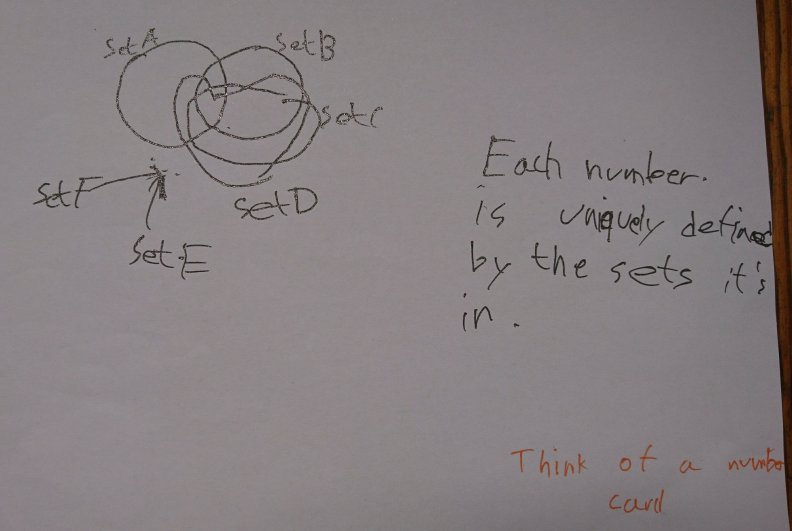 Set A
Set B
Set C
Set D
Set F
Set E
Each number.
is uniquely defined
by the sets it's
in.
Think of a number
card